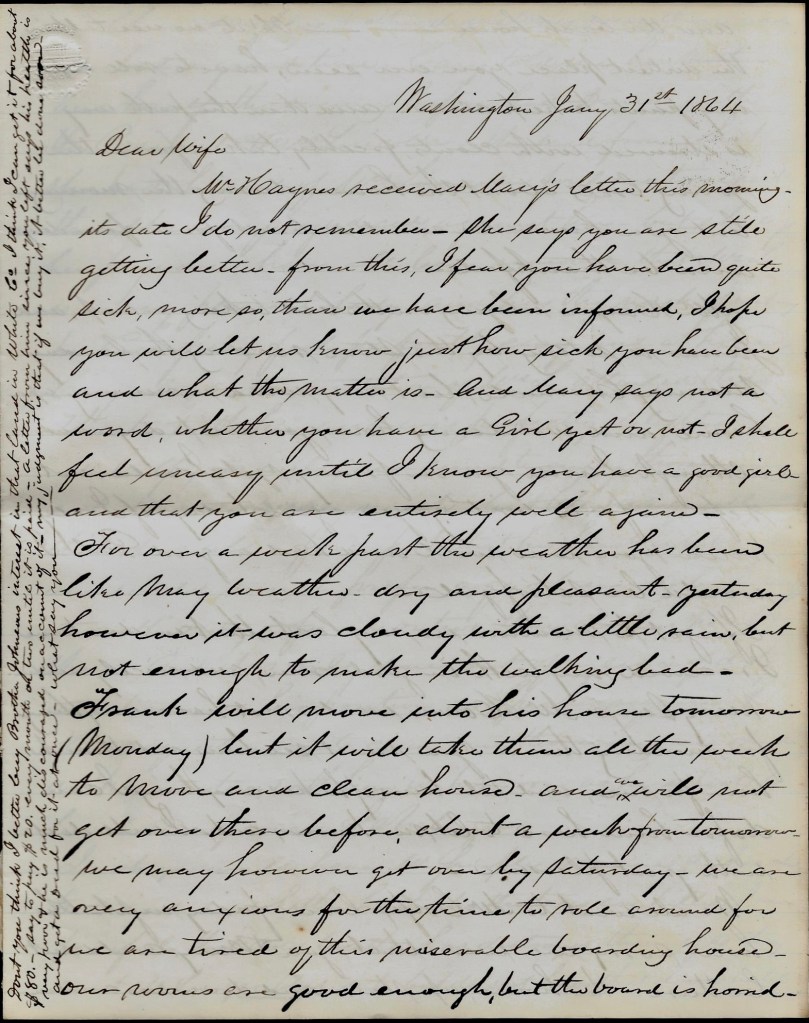 Washington Jany 31st 1864
Dear Wife
Mr Haynes received Mary's letter this morning-
its date I do not remember- she says you are still
getting better- from this, I fear you have been quite
sick, more so, than we have been informed, I hope
you will let us know just how sick you have been
and what the matter is- And Mary says not a
word, whether you have a Girl yet or not- I shall
feel uneasy until I know you have a good girl-
and that you are entirely well again-
For over a week past the weather has been
like May weather- dry and pleasant- yesterday
however it was cloudy with a little rain, but
not enough to make the walking bad-
Frank will move into his house tomorrow
(Monday) but it will take them all the week
to move and clean house- and we will not
get over there before, about a week from tomorrow-
we may however get over by Saturday- we are
very anxious for the time to role around for
we are tired of this miserable boarding house-
our rooms are good enough, but the board is horrid-
Dont you think I better buy Brother Johnsons interest in that land in White Co I think I can get it for about
$80.- say to pay $20. every month or two until it is paid- a letter from him since you left says his health is
very poor & he is much discouraged on account of it- my judgment is that if we buy it, it better be done soon-
and get a deed for it at once- what say you-